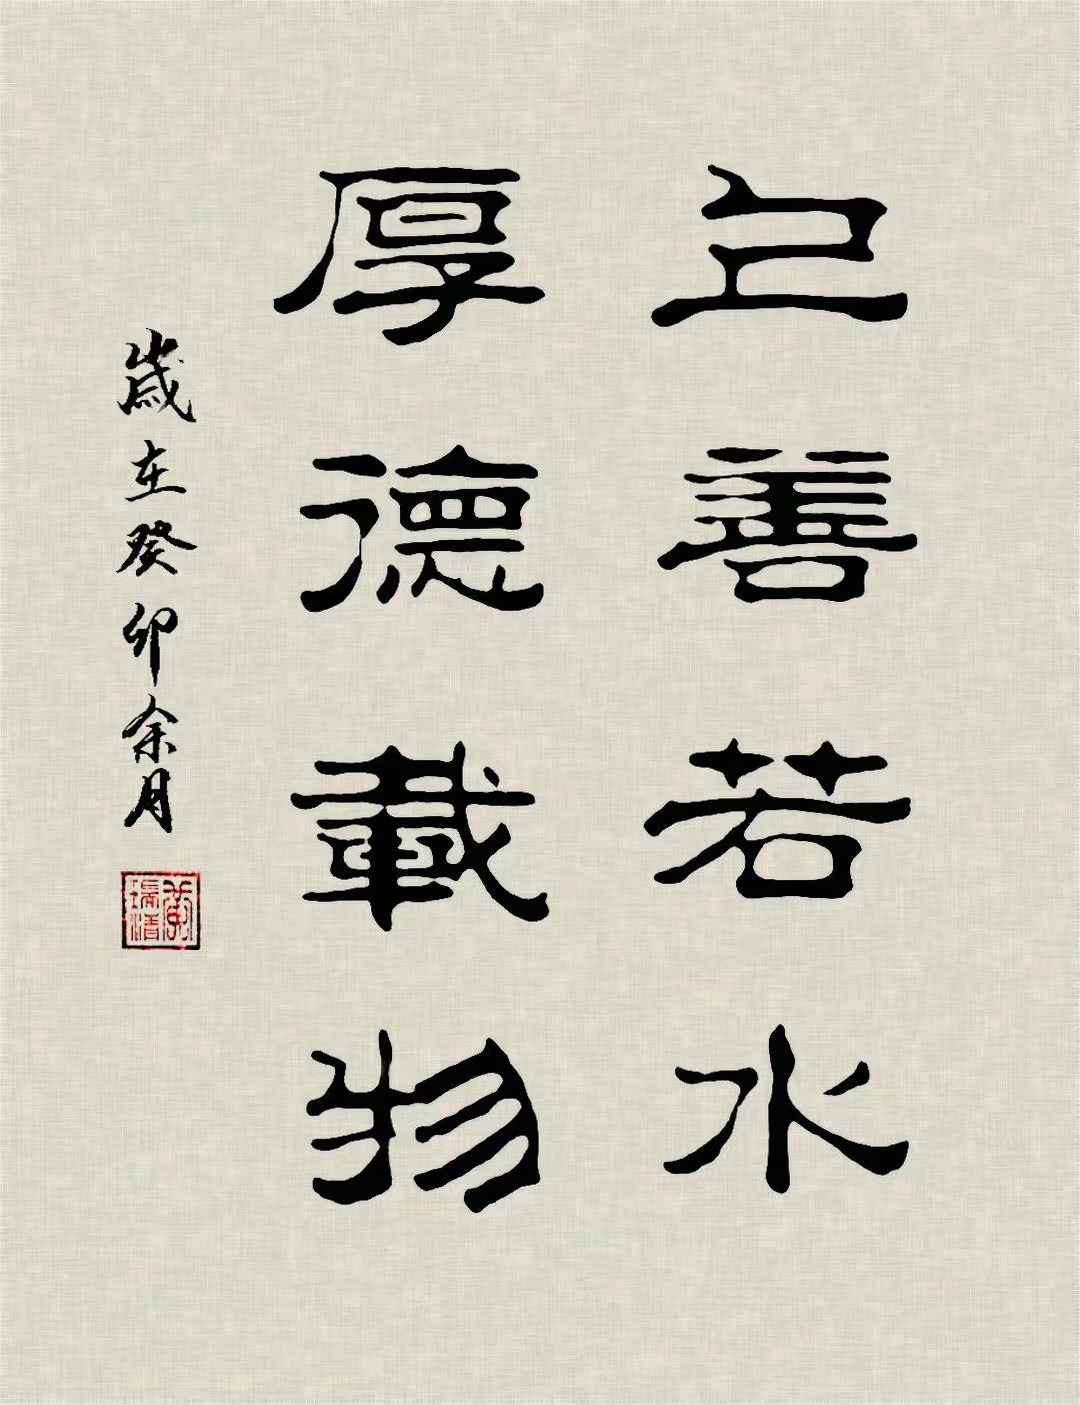 上善若水
厚德載物
歲在癸卯余月